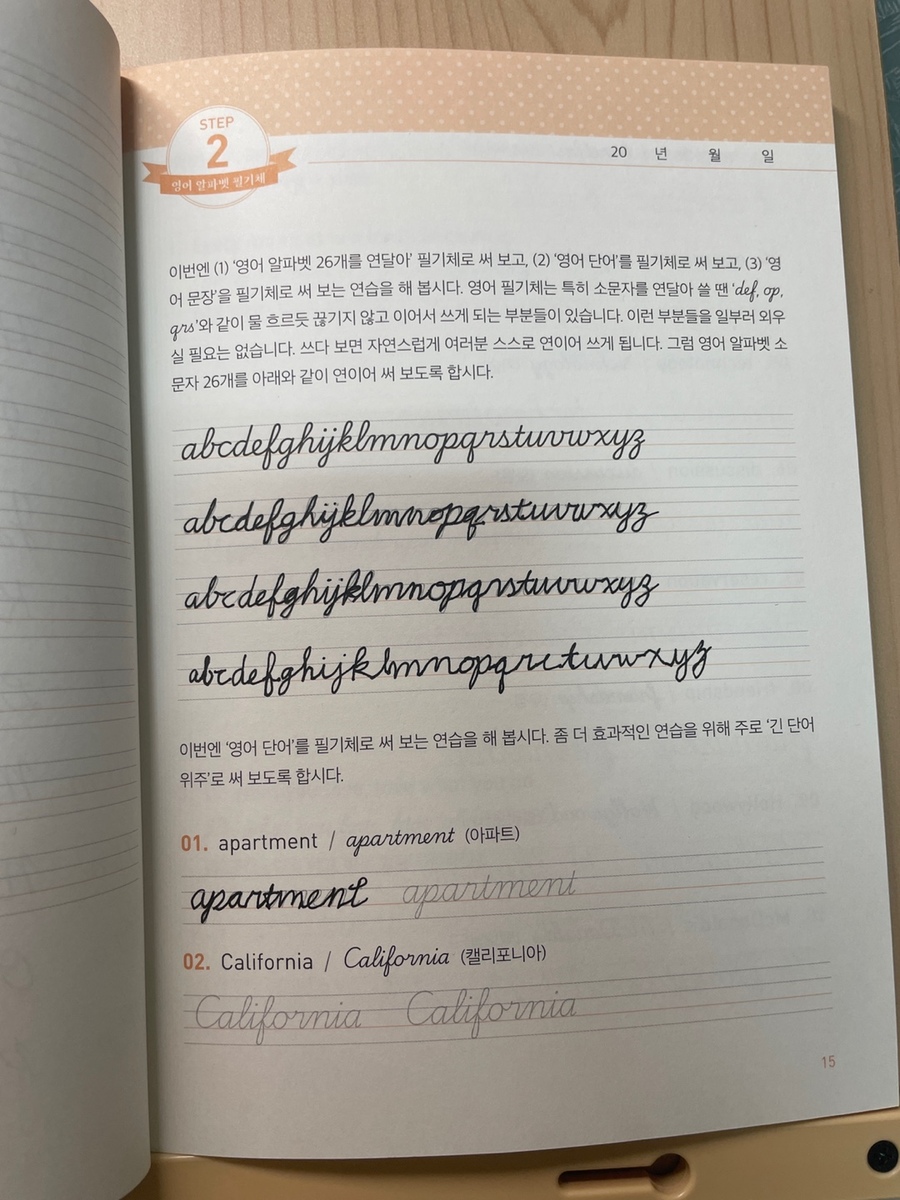 STEP
2
영어 알파벳 필기체
20 년 월 일
이번엔 (1) ‘영어 알파벳 26개를 연달아’ 필기체로 써 보고, (2) ‘영어 단어’를 필기체로 써 보고, (3) ‘영
어 문장’을 필기체로 써 보는 연습을 해 봅시다. 영어 필기체는 특히 소문자를 연달아 쓸 땐 ‘def, op,
qrs’와 같이 물 흐르듯 끊기지 않고 이어서 쓰게 되는 부분들이 있습니다. 이런 부분들을 일부러 외우
실 필요는 없습니다. 쓰다 보면 자연스럽게 여러분 스스로 연이어 쓰게 됩니다. 그럼 영어 알파벳 소
문자 26개를 아래와 같이 연이어 써 보도록 합시다.
abcdefghijklmnopqrstuvwxyz
abcdefghijklmnopqrstuvwxyz
abcdefghijklmnopqrstuvwxyz
abcdefghijklmnopqrstuvwxyz
이번엔 ‘영어 단어’를 필기체로 써 보는 연습을 해 봅시다. 좀 더 효과적인 연습을 위해 주로 ‘긴 단어
위주’로 써 보도록 합시다.
01. apartment / apartment (아파트)
apartment apartment
02. California / California (캘리포니아)
California California
15